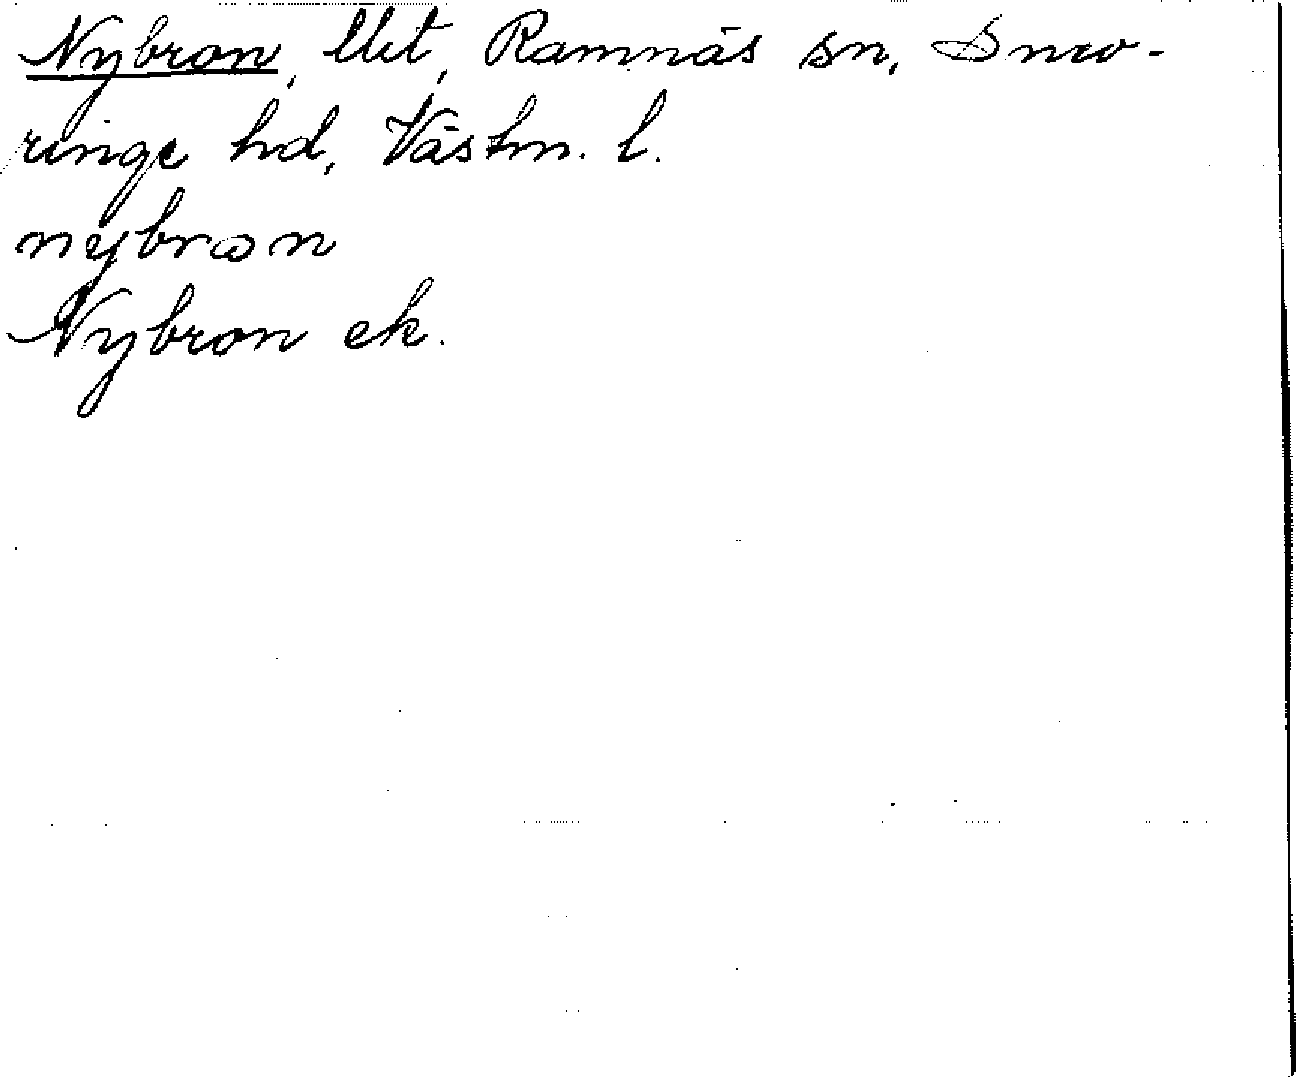 Nybron, lht, Ramnäs sn, Snev-
ringe hd, Västm. l.
nybrɷn
Nybron ek.